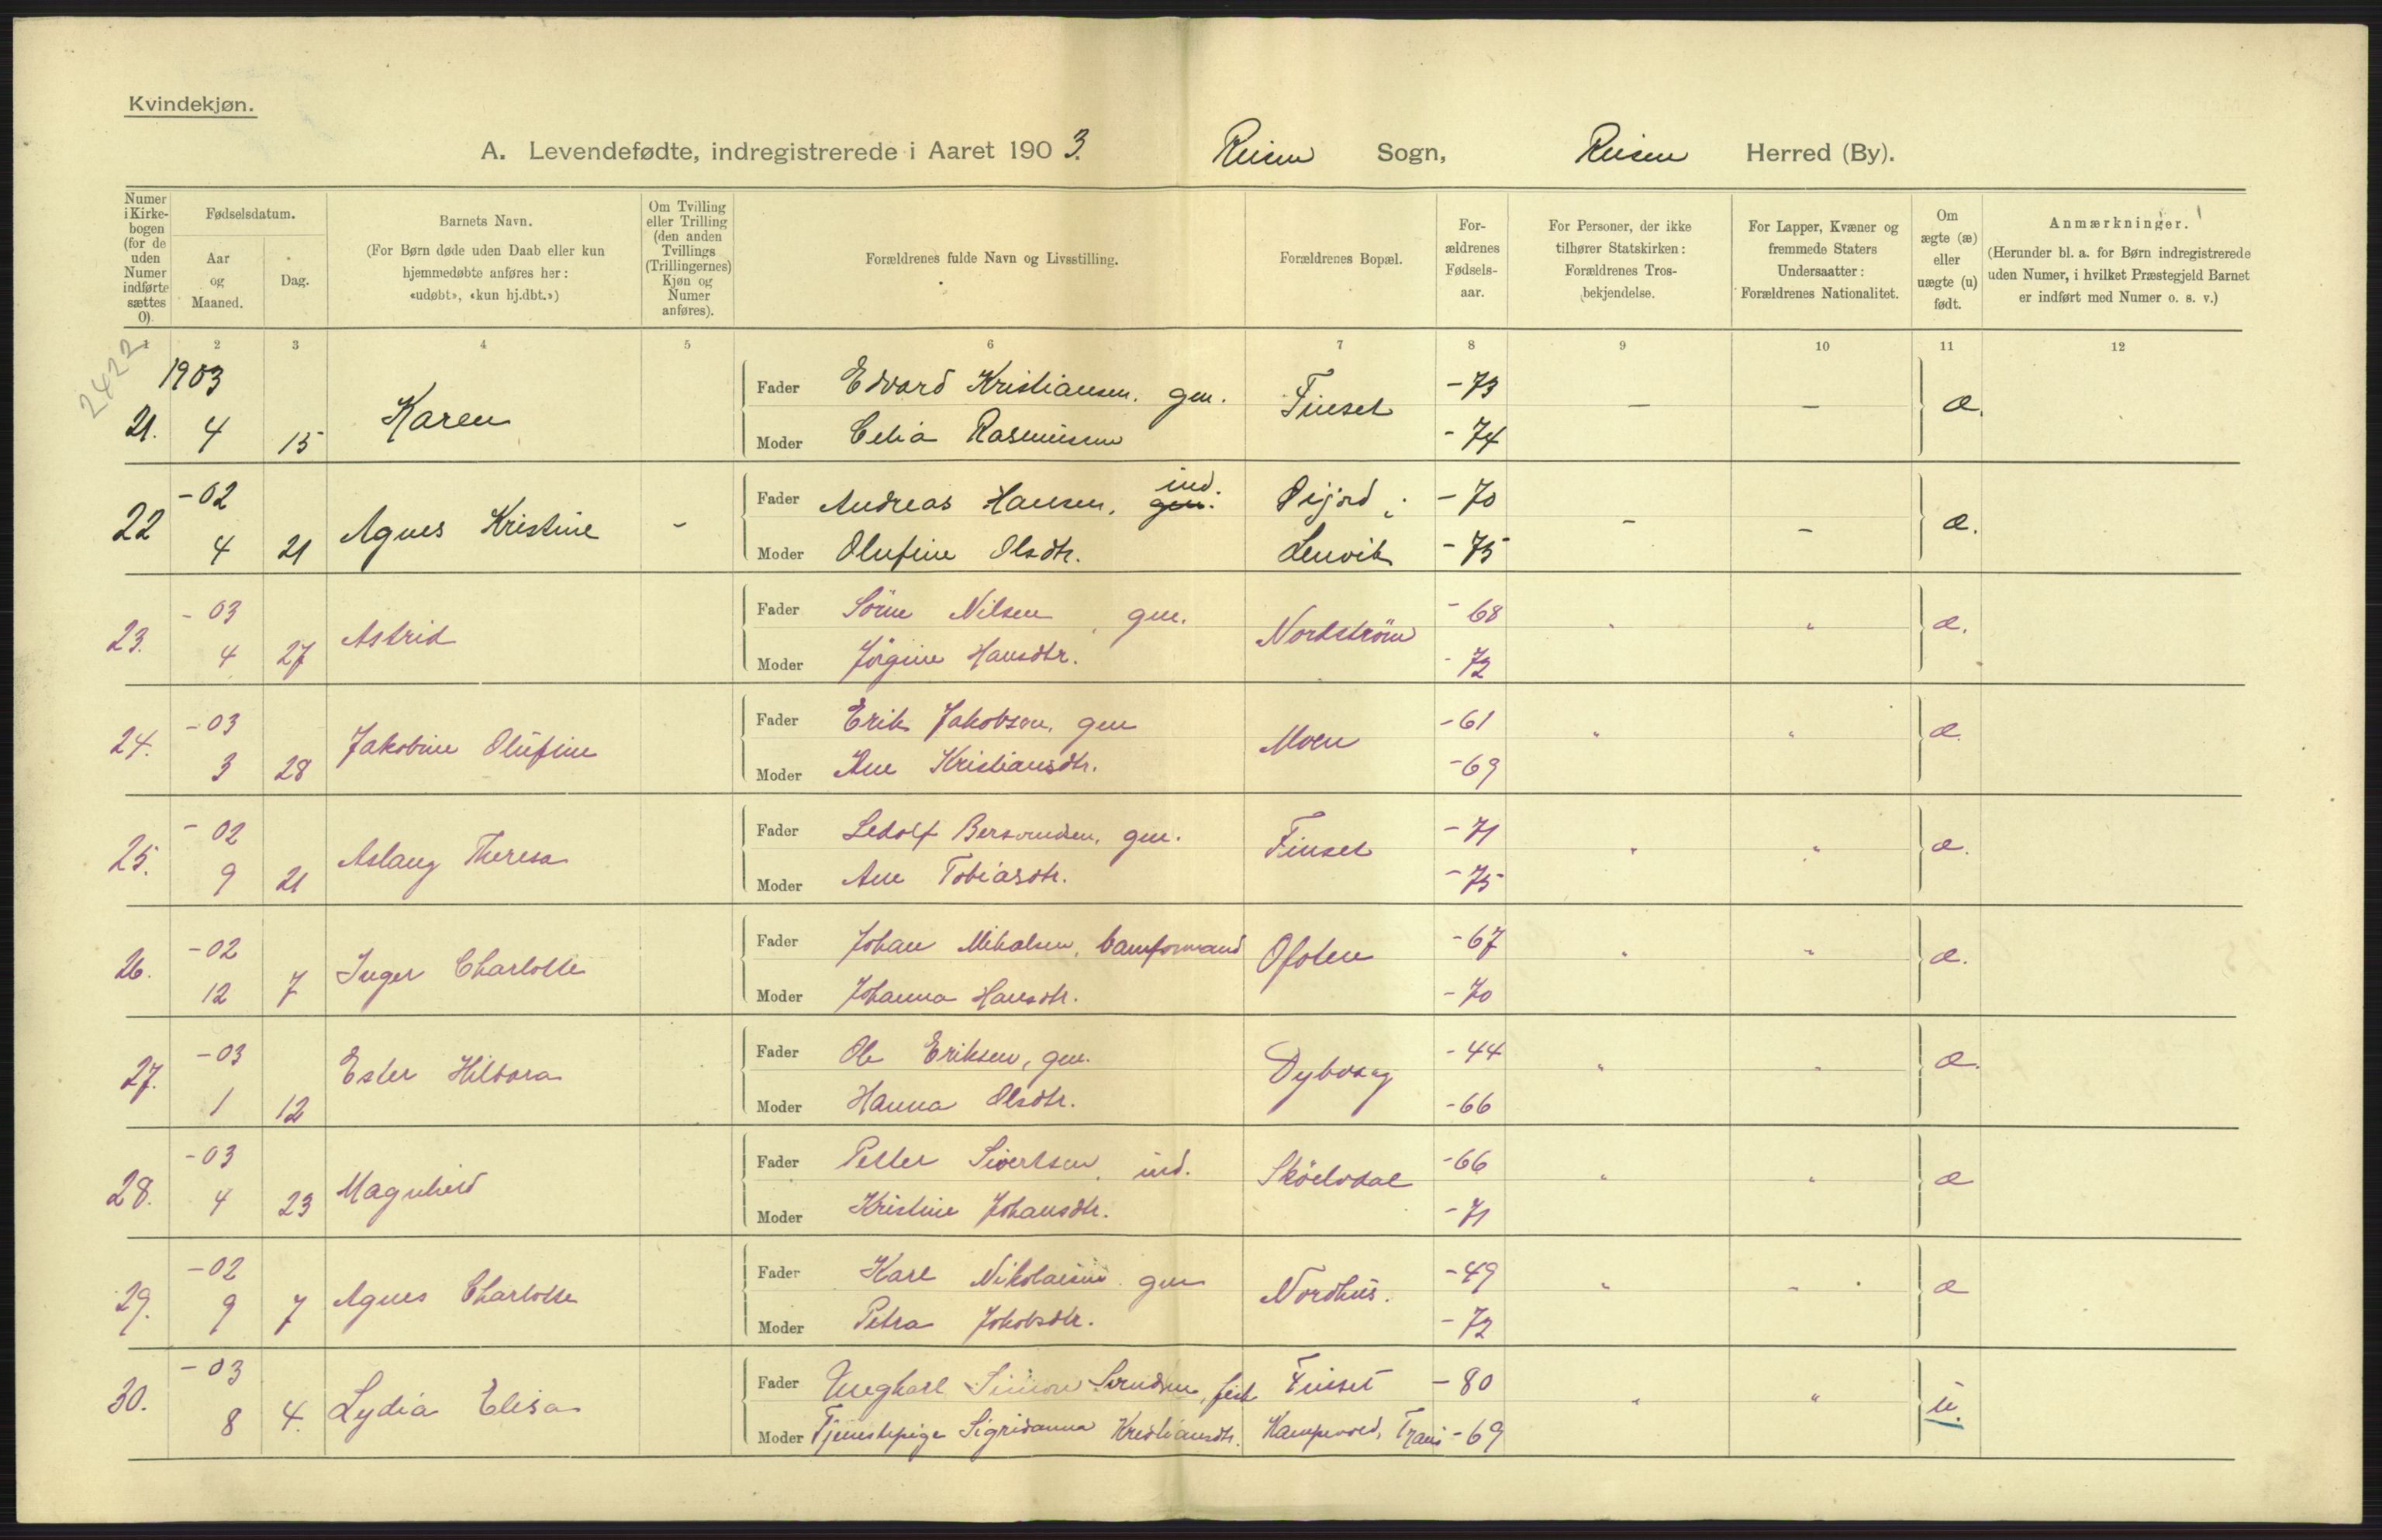 Kvindekjøn.
A. Levendefødte, indregistrerede i Aaret 1903. Reisen Sogn, Reisen Herred (By).
Numer i Kirkebogen (for de uden Numer indførte sættes 0).
Fødselsdatum.
Aar og Maaned.
Dag.
Barnets Navn.
(For Børn døde uden Daab eller kun hjemmedøbte anføres her: «udøbt», «kun hj.dbt.»)
Om Tvilling eller Trilling (den anden Tvillings (Trillingernes) Kjøn og Numer anføres).
Forældrenes fulde Navn og Livsstilling.
Forældrenes Bopæl.
Forældrenes Fødselsaar.
For Personer, der ikke tilhører Statskirken: Forældrenes Trosbekjendelse.
For Lapper, Kvæner og fremmede Staters Undersaatter: Forældrenes Nationalitet.
Om ægte (æ) eller uægte (u) født.
Anmærkninger.
(Herunder bl. a. for Børn indregistrerede uden Numer, i hvilket Præstegjeld Barnet er indført med Numer o. s. v.)
1 2 3 4 5 6 7 8 9 10 11 12
2422
1903 Fader Edvard Kristiansen, gm. Finset -73 — — æ.
21. 4 15 Karen Moder Celia Rasmussen -74
-02 Fader Andreas Hansen, gm. ind. Øijord i -70 - - æ.
22 4 21 Agnes Kristine - Moder Olufine Olsdtr. Lenvik -75
-03 Fader Sören Nilsen, gm. Nordström -68 " " æ.
23. 4 27 Astrid Moder Jörgine Hansdtr. -72
-03 Fader Erik Jakobsen, gm Moen -61 " " æ.
24. 3 28 Jakobine Olufine Moder Ane Kristiansdtr. -69
-02 Fader Ledolf Bersvendsen, gm. Finset -71 " " æ.
25. 9 21 Aslaug Theresa Moder Ane Tobiasdtr. -75
-02 Fader Johan Mikalsen, banformand Ofoten -67 " " æ.
26. 12 7 Inger Charlotte Moder Johanna Hansdtr. -70
-03 Fader Ole Eriksen, gm. Dybvaag -44 " " æ.
27. 1 12 Ester Hildora Moder Hanna Olsdtr. -66
-03 Fader Petter Sivertsen, ind. Sköelvdal -66 " " æ
28. 4 23 Magnhild Moder Kristine Johansdtr. -71
-02 Fader Karl Nikolaisen gm Nordhus. -49 " - æ
29. 9 7 Agnes Charlotte Moder Petra Jakobsdtr. -72
-03 Fader Ungkarl Simon Svendsen, fisk Finset -80 " " u.
30. 8 4. Lydia Elisa Moder Tjenestepige Sigridanna Kristiansdtr. Kampevold, Tranö -69